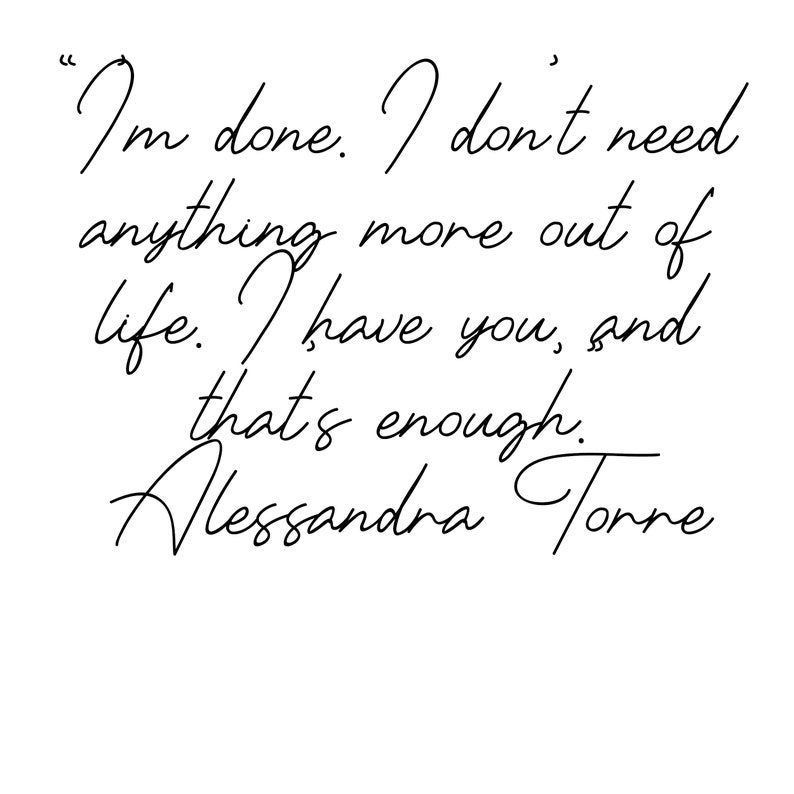 “I’m done. I don’t need
anything more out of
life. I have you, and
that’s enough.”
Alessandra Torre